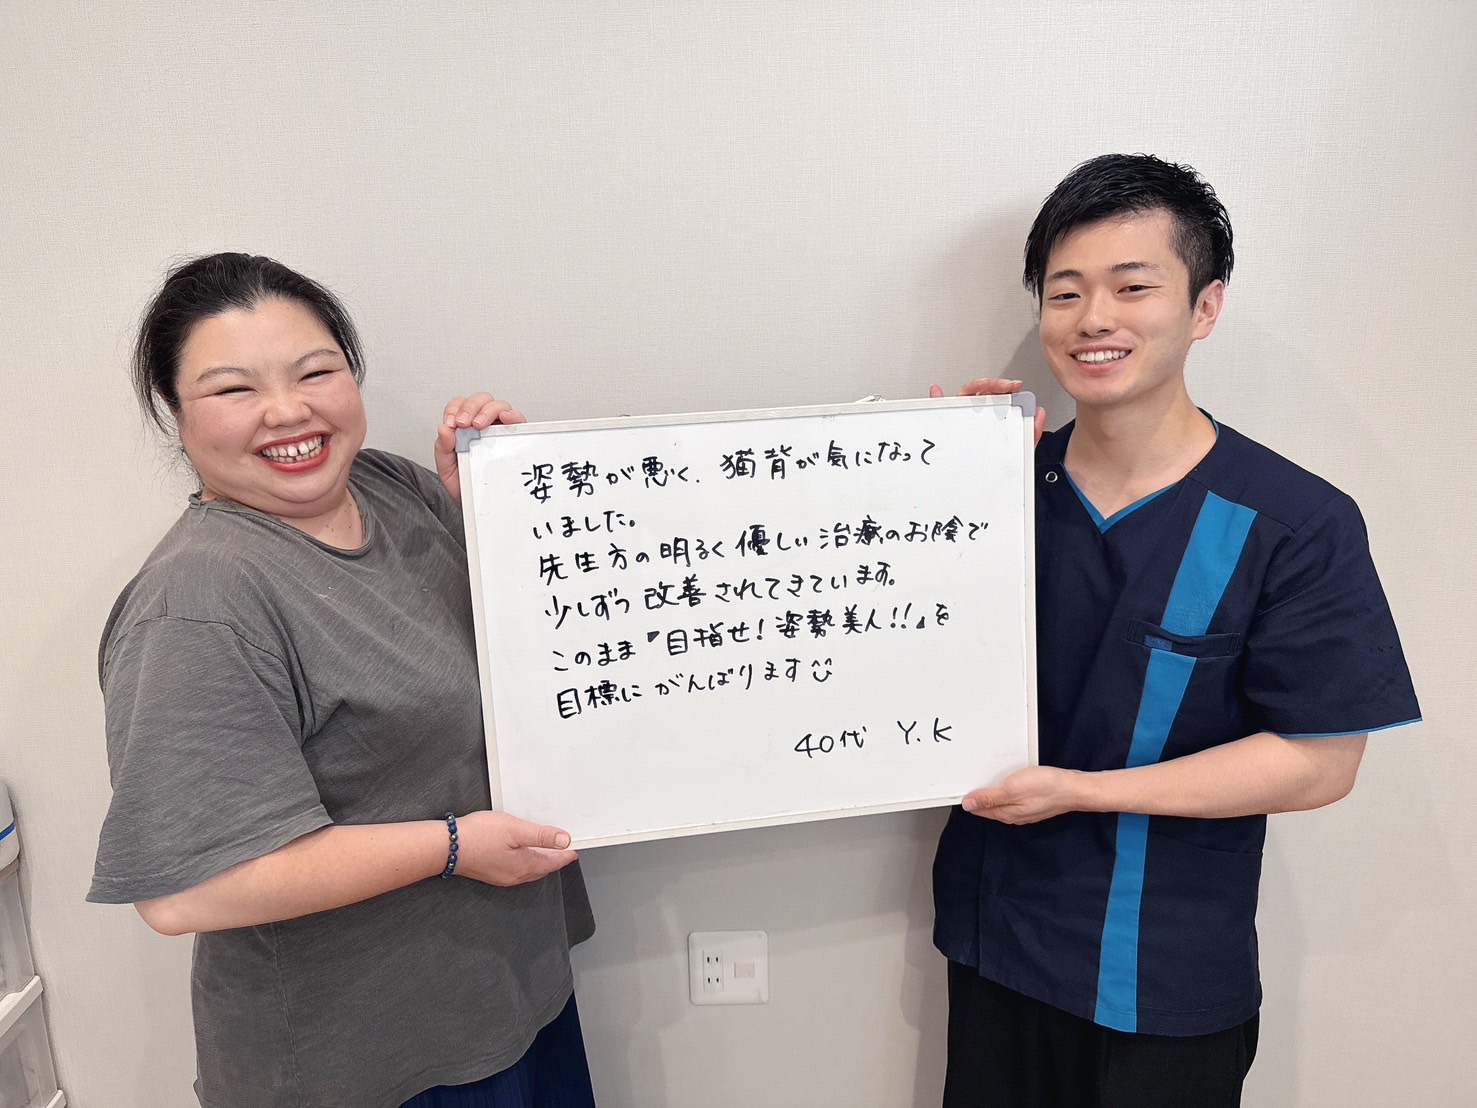 姿勢が悪く、猫背が気になって
いました。
先生方の明るく優しい治療のお陰で
少しずつ改善されてきています。
このまま『目指せ！姿勢美人!!』を
目標にがんばります
40代 Y.K